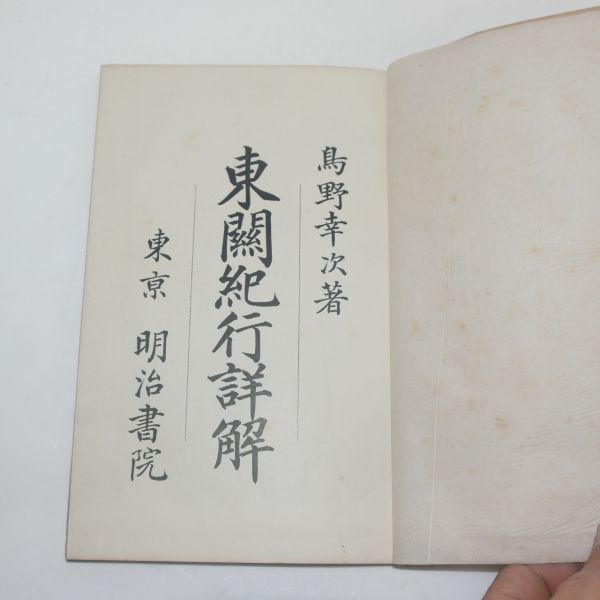 鳥野幸次著
東關紀行詳解
東京 明治書院